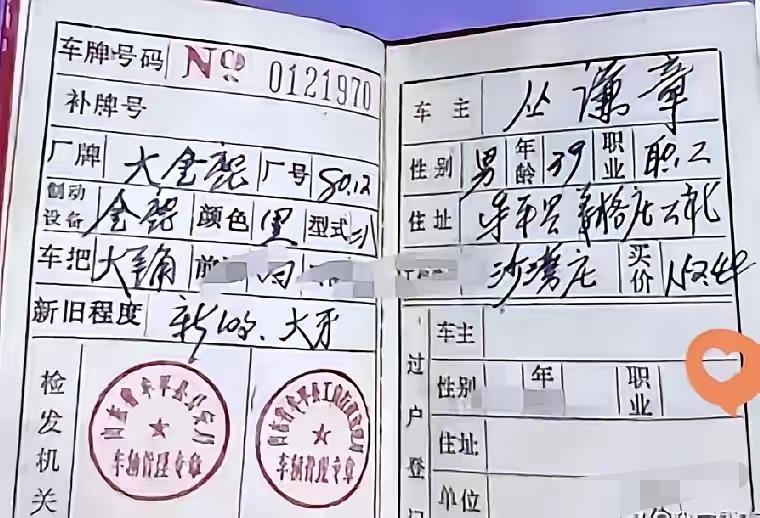 车牌号码 No 0121970
补牌号
厂牌 大金鹿 厂号 80.12
制动设备 金鹿 颜色 黑 型式
车把 大 前
新旧程度 新的、大
检发机关
车辆管理专章
车辆管理专章
车主 丛谦章
性别 男 年龄 39 职业 职工
住址 牟平县 格庄公社
沙 庄 买价
过户登
车主
性别 年 职业
住址
单位